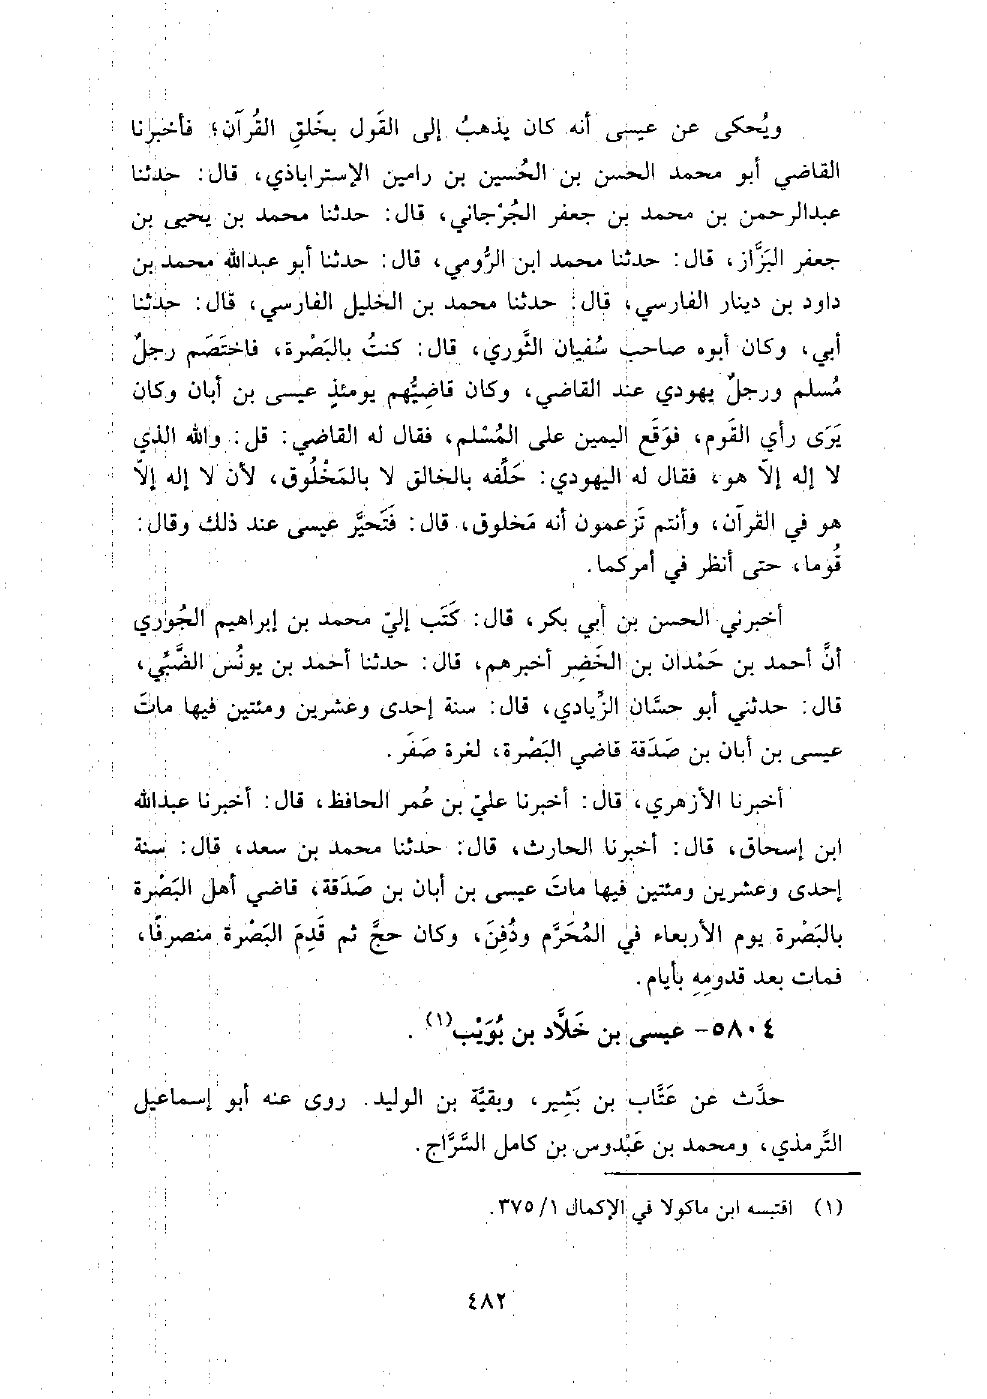 ويُحكى عن عيسى أنه كان يذهبُ إلى القَول بخَلقِ القُرآن؛ فأخبرنا
القاضي أبو محمد الحسن بن الحُسين بن رامين الإستراباذي، قال: حدثنا
عبدالرحمن بن محمد بن جعفر الجُرْجاني، قال: حدثنا محمد بن يحيى بن
جعفر البَزَّاز، قال: حدثنا محمد ابن الرُّومي، قال: حدثنا أبو عبدالله محمد بن
داود بن دينار الفارسي، قال: حدثنا محمد بن الخليل الفارسي، قال: حدثنا
أبي، وكان أبوه صاحب سُفيان الثَّوري، قال: كنتُ بالبَصْرة، فاختَصَم رجلٌ
مُسلم ورجلٌ يهودي عند القاضي، وكان قاضِيُّهم يومئذٍ عيسى بن أبان وكان
يَرَى رأي القَوم، فوَقَع اليمين على المُسْلم، فقال له القاضي: قل: والله الذي
لا إله إلاّ هو، فقال له اليهودي: حَلِّفه بالخالق لا بالمَخْلُوق، لأن لا إله إلاّ
هو في القرآن، وأنتم تَزعمون أنه مَخلوق، قال: فَتَحيَّر عيسى عند ذلك وقال:
قُوما، حتى أنظر في أمركما.
أخبرني الحسن بن أبي بكر، قال: كَتَب إليّ محمد بن إبراهيم الجُوري
أنَّ أحمد بن حَمْدان بن الخَضِر أخبرهم، قال: حدثنا أحمد بن يونُس الضَّبِّي،
قال: حدثني أبو حسَّان الزِّيادي، قال: سنة إحدى وعشرين ومئتين فيها ماتَ
عيسى بن أبان بن صَدَقة قاضي البَصْرة، لغرة صَفَر.
أخبرنا الأزهري، قال: أخبرنا عليّ بن عُمر الحافظ، قال: أخبرنا عبدالله
ابن إسحاق، قال: أخبرنا الحارث، قال: حدثنا محمد بن سعد، قال: سنة
إحدى وعشرين ومئتين فيها ماتَ عيسى بن أبان بن صَدَقة، قاضي أهل البَصْرة
بالبَصْرة يوم الأربعاء في المُحَرَّم ودُفِنَ، وكان حجَّ ثم قَدِمَ البَصْرة منصرفًا،
فمات بعد قدومِهِ بأيام.
٥٨٠٤- عيسى بن خَلَّاد بن بُوَيْب(١).
حدَّث عن عَتَّاب بن بَشِير، وبقيَّة بن الوليد. روى عنه أبو إسماعيل
التَّرمذي، ومحمد بن عَبْدوس بن كامل السَّرَّاج.
(١) اقتبسه ابن ماكولا في الإكمال ١/ ٣٧٥.
٤٨٢